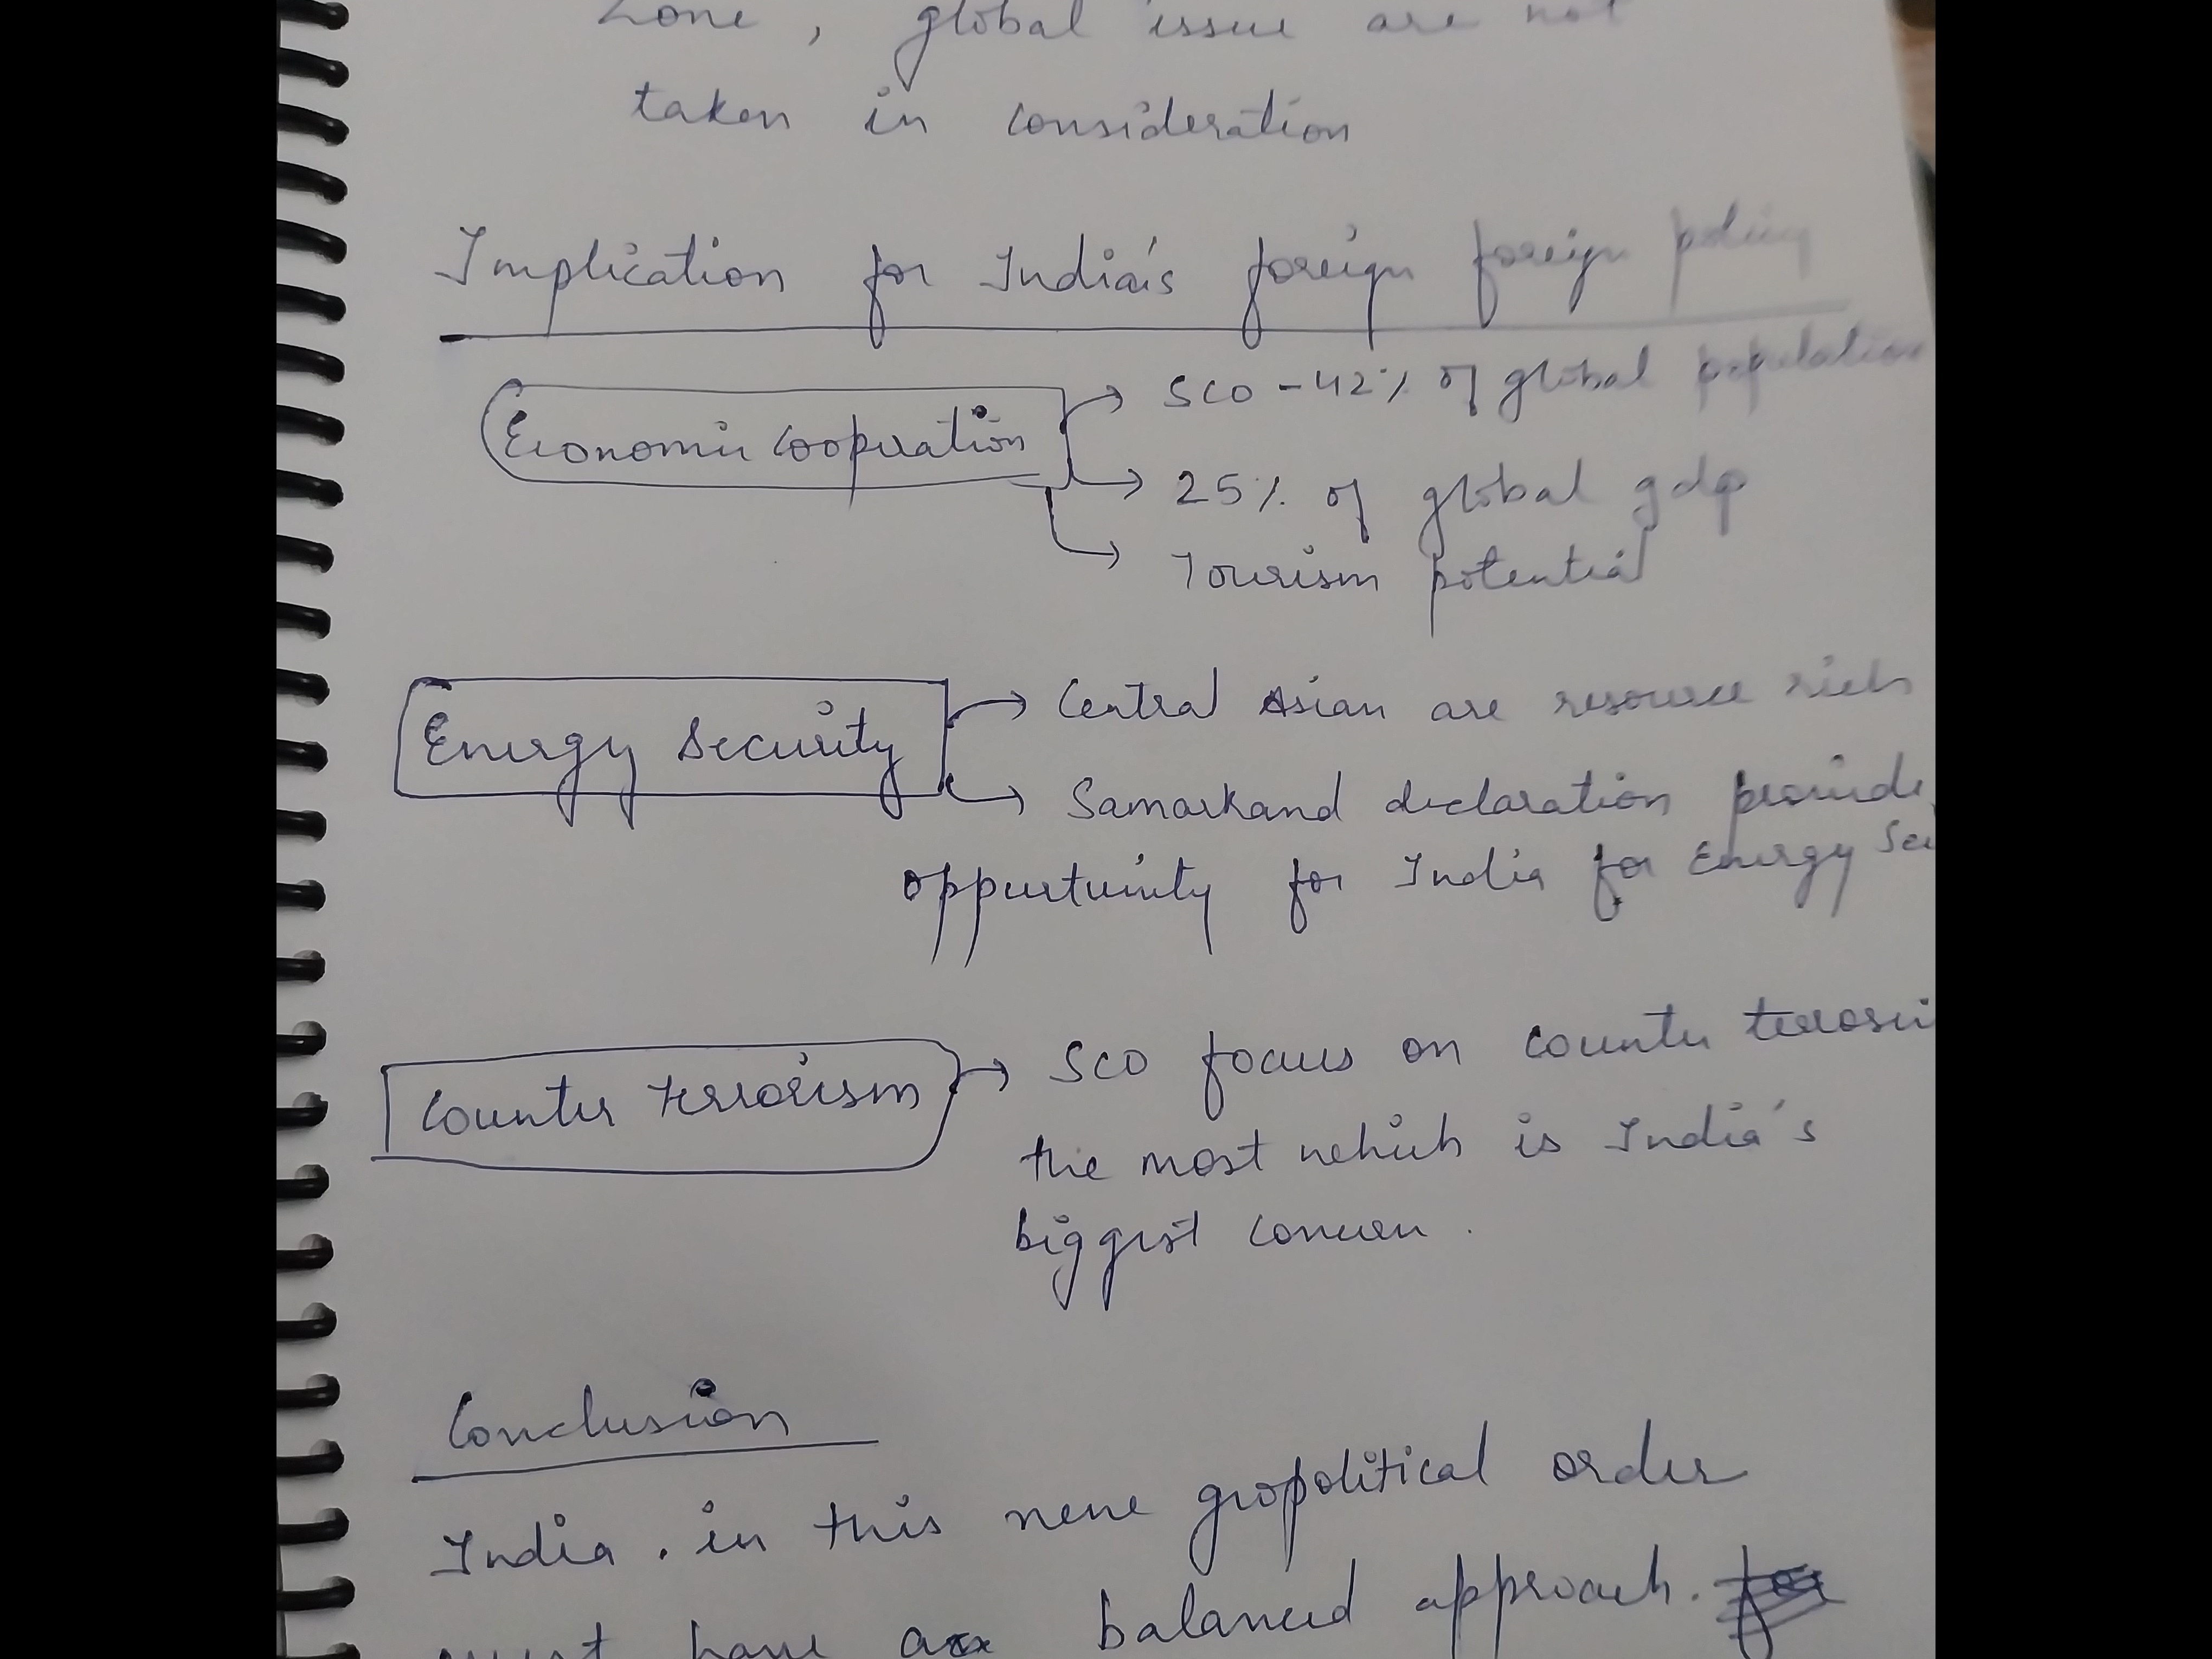 zone, global issue are not
taken in consideration
Implication for India's foreign foreign policy
Economic Cooperation
SCO - 42% of global population
25% of global gdp
Tourism potential
Energy Security
Central Asian are resource rich
Samarkand declaration provide
oppurtunity for India for Energy Sec
Counter terrorism
SCO focus on counter terroris
the most which is India's
biggest concern.
Conclusion
India. in this new geopolitical order
must have a balanced approach.